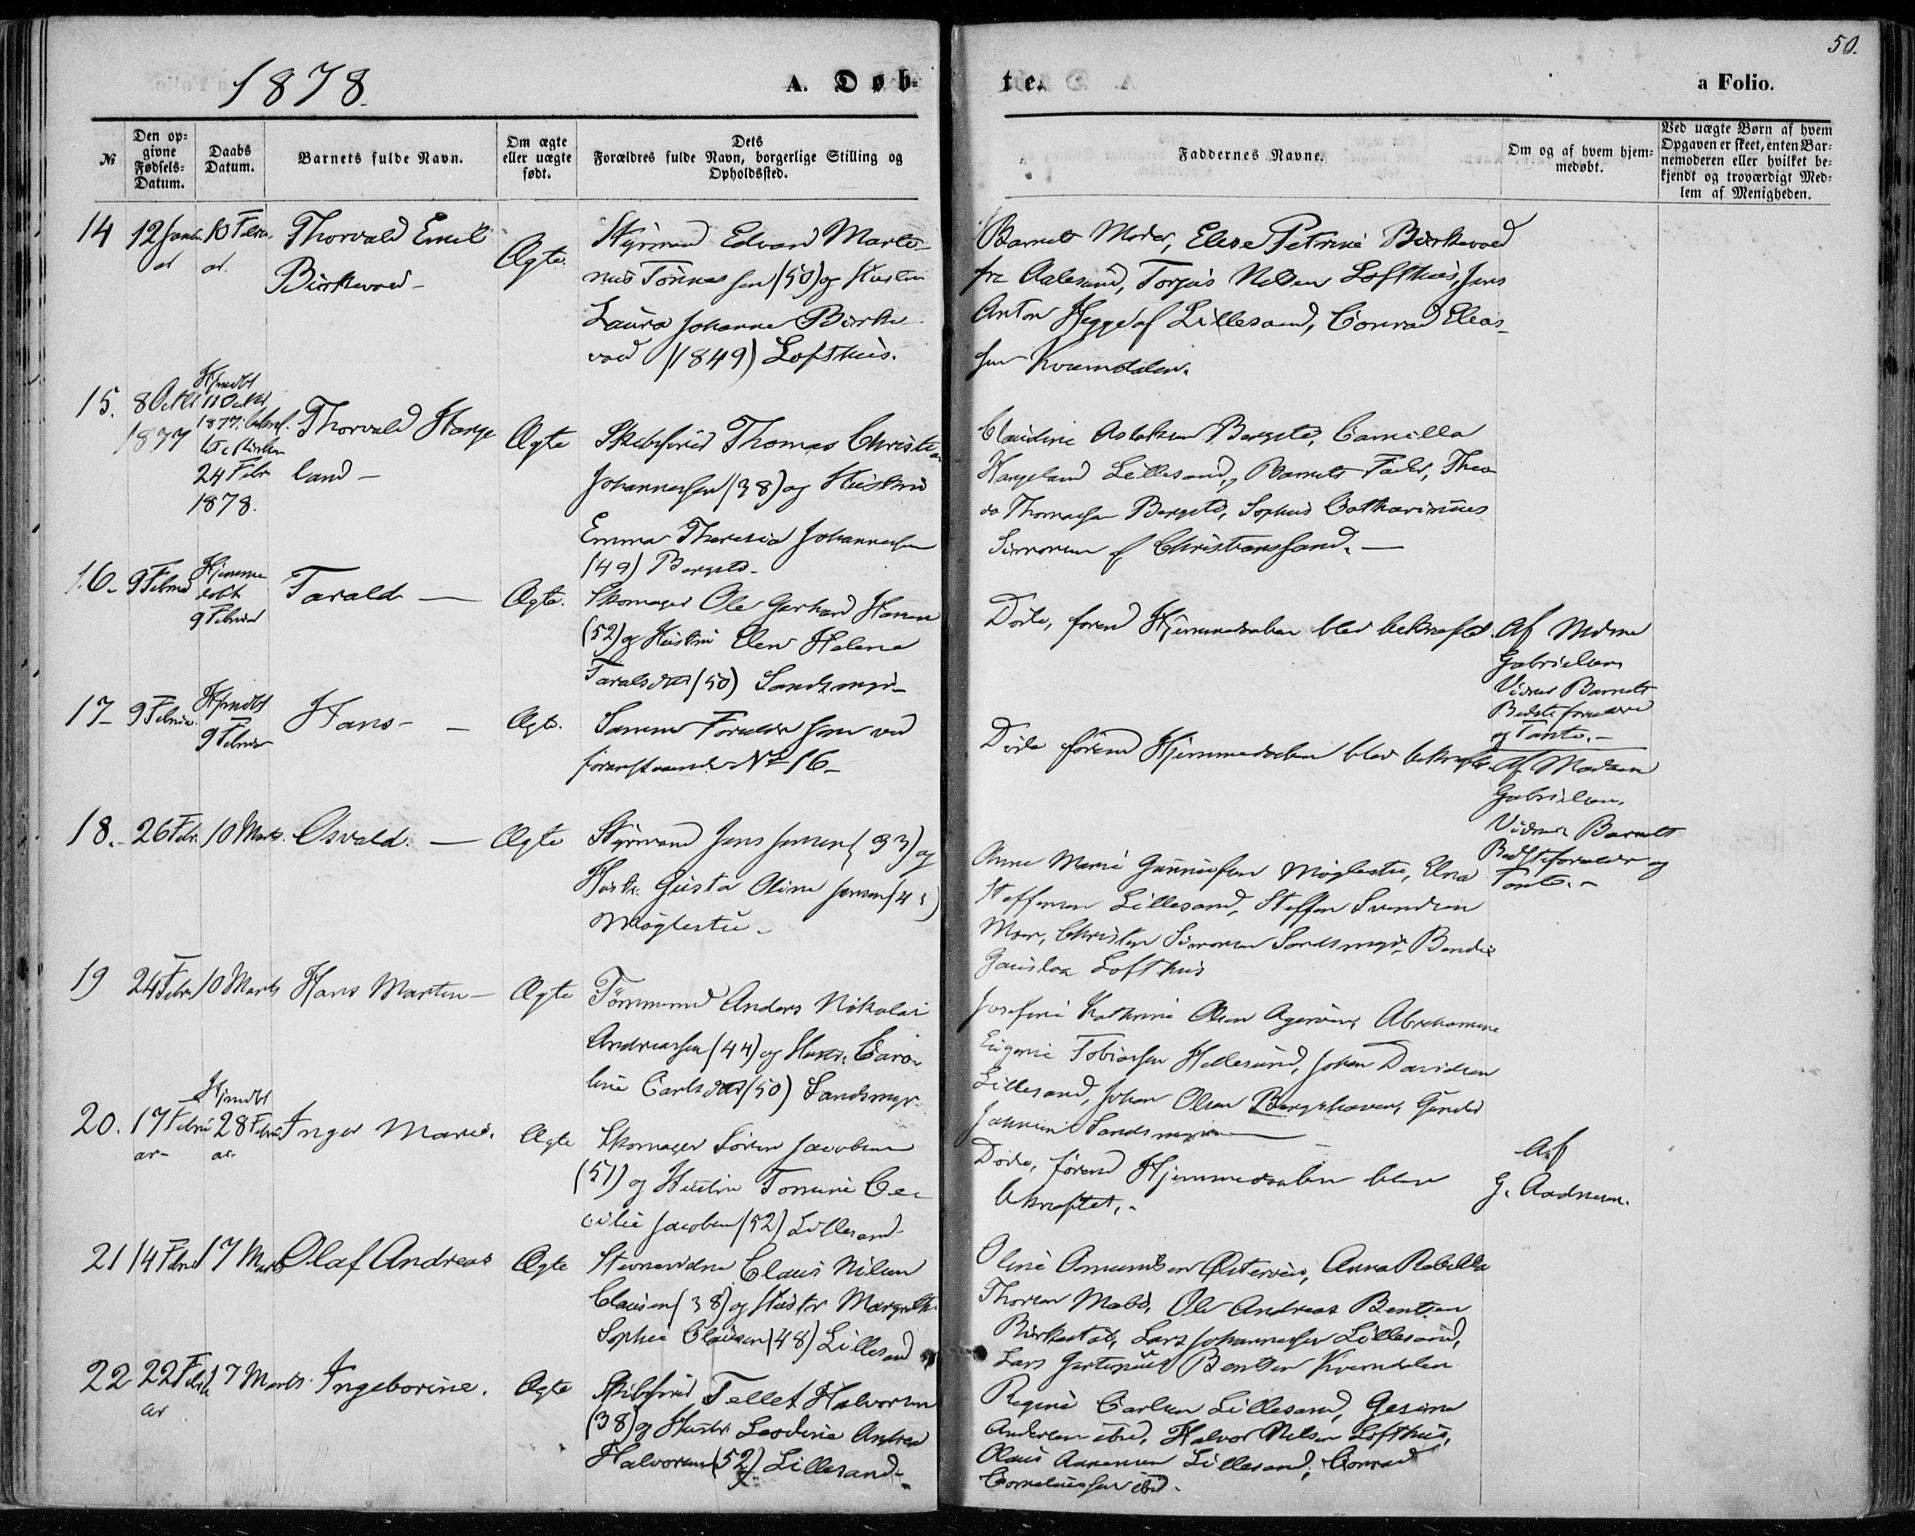 1878.
A. Døb-
te.
a Folio.
50.
№
Den op-
givne
Fødsels-
Datum.
Daabs
Datum.
Barnets fulde Navn.
Om ægte
eller uægte
født.
Dets
Forældres fulde Navn, borgerlige Stilling og
Opholdssted.
Faddernes Navne.
Om og af hvem hjem-
medøbt.
Ved uægte Børn af hvem
Opgaven er skeet, enten Bar-
nemoderen eller hvilket be-
kjendt og troværdigt Med-
lem af Menigheden.
14
12 Janu-
ar
10 Febru-
ar.
Thorvald Emil
Birkevold -
Ægte.
Styrmand Edvard Marti-
nus Tønnessen (50) og Hustru
Laura Johanne Birke-
vold (1849) Lofthus.
Barnets Moder, Elise Petrine Birkevold
fra Aalesund, Torjus Nilsen Lofthus, Jens
Anton Hegge af Lillesand, Conrad Elias-
sen Kvemdalen.
15.
8 Octbr
1877
Hjmdbt
11 Octbr
1877,
24 Febr
1878.
Thorvald Harge
land -
Ægte
Skibsfører Thomas Christian
Johannessen (38) og Hustru
Emma Theresia Johannessen
(49) Bergstø.
Claudine Aslaksen Bergstø, Camilla
Hargeland Lillesand, Barnets Fader, Theo-
do Thomassen Bergstø, Sophus Catharinius
Simonsen af Christianssand. -
16.
9 Februar
Hjemme
døbt
9 Februar
Tarald -
Ægte.
Skomager Ole Gerhard Hansen
(52) og Hustru Elen Helene
Taralsdatter (50) Sandsmyr -
Døde, førend Hjemmedaaben blev bekræftet.
Af Madme
Gabrielsen
Vidner Barnets
Bedsteforældre
og Tante. -
17 -
9 Februar.
Hjmdbt
9 Februar
Hans -
Ægte.
Samme Forældre som ved
foranstaaende № 16 -
Døde førend Hjemmedaaben blev bekræftet.
Af Madam
Gabrielsen.
Vidner Barnets
Bedsteforældre og
Tante. -
18.
26 Febr.
10 Marts.
Osvald. -
Ægte
Styrmand Jens Jensen (33) og
Hustr. Gusta Oline Jensen (45)
Møglestu -
Anne Marie Gunnufsen Møglestu, Elna
Steffensen Lillesand, Steffen Svendsen
Moer, Christen Simonsen Sandsmyr, Bendix
Gauslaa Lofthus
19
24 Febr
10 Marts
Hans Martin -
Ægte
Tømmermd Anders Nikolai
Andreassen (44) og Hustr. Caro-
line Carlsdatter (50) Sandsmyr.
Josefine Kathrine Olsen Agerøen, Abrahamine
Eugenie Tobiassen Hellesund, Johan Davidsen
Lillesand, Johan Olsen Bergshaven, Gunder
Sandsmyr
20.
17 Febru
ar -
Hjmdbt
28 Febru
ar
Inger Marie.
Ægte
Skomager Søren Jacobsen
(51) og Hustru Tomine Ce-
cilie Jacobsen (52) Lillesand
Døde, førend Hjemmedaaben blev
bekræftet. -
Af
G. Aadnesen.
21
14 Febr
17 Marts
Olaf Andreas
Ægte
Claus Nilsen
Clausen (38) og Hustr Margrethe
Sophie Clausen (48) Lillesand
Oline Amundsen Østerøen, Anna Rebekka
Thorsen Mabø, Ole Andreas Bentsen
Birkestøl, Lars Johannessen Lillesand,
Lars Bentsen Kvemdalen
22
22 Febru
ar
17 Marts
Ingeborine.
Ægte
Skibsfører Tellef Halvorsen
(38) og Hustr. Leodine Andrea
Halvorsen (52) Lillesand -
Regine Carlsen Lillesand, Gesine
Andersen ibid, Halvor Nilsen Lofthus,
Olaus Aanensen Lillesand, Conrad
Corneliussen ibid.